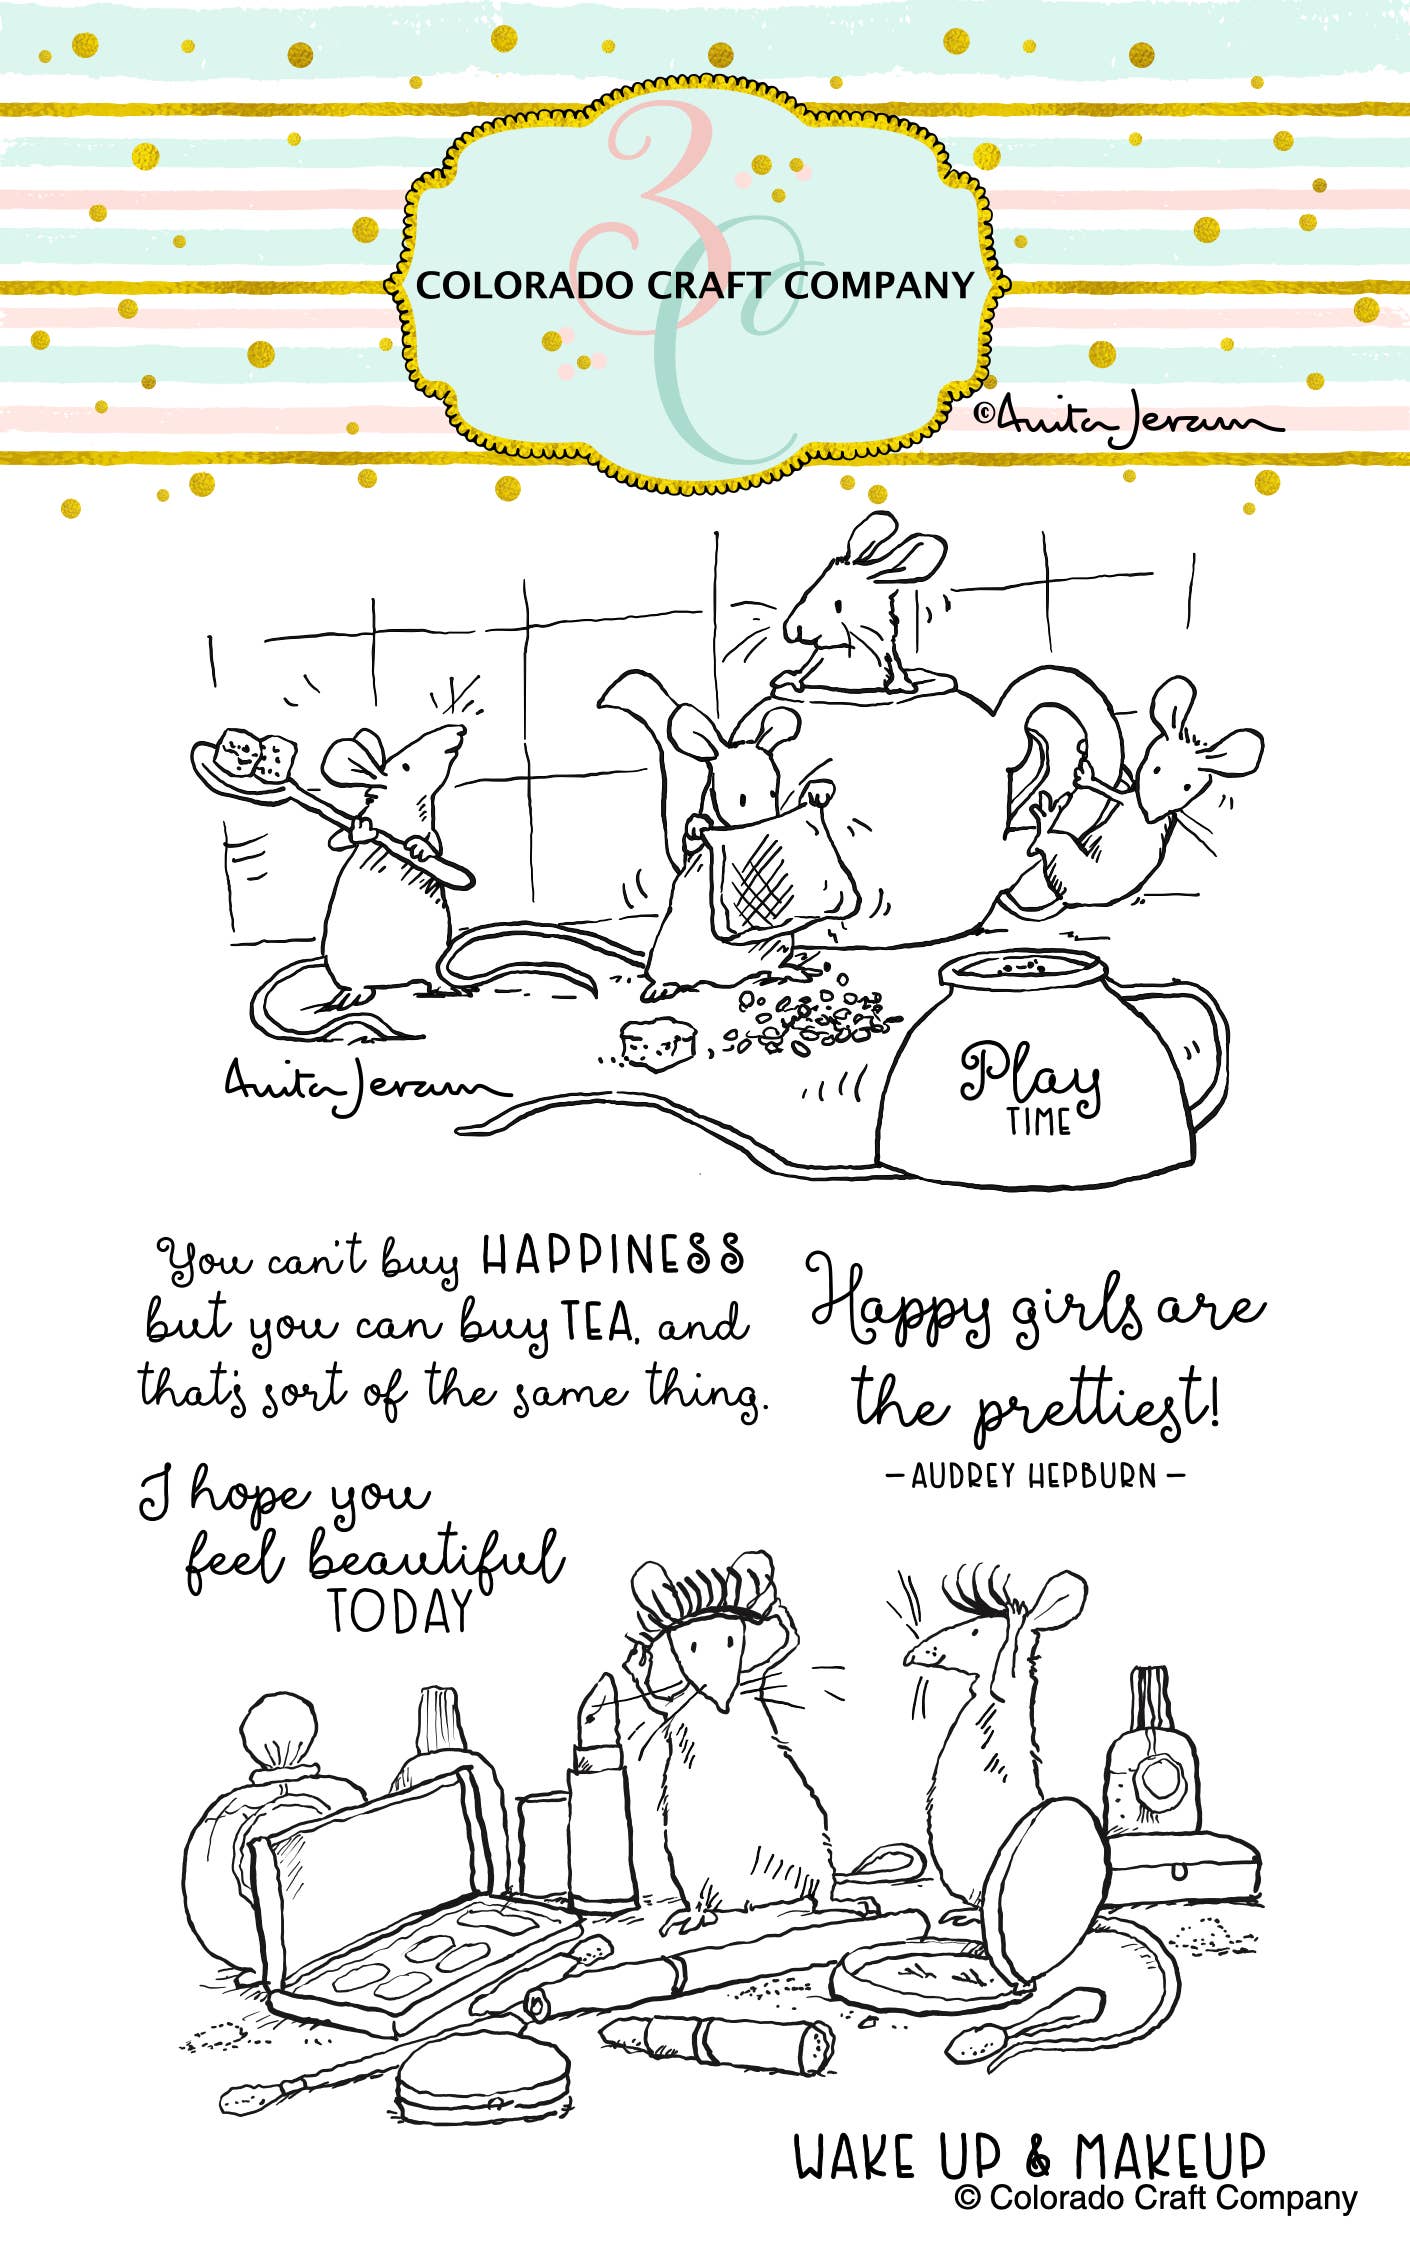 3C
COLORADO CRAFT COMPANY
©Anita Jeram
Play
TIME
Anita Jeram
You can't buy HAPPINESS
but you can buy TEA, and
that's sort of the same thing.
Happy girls are
the prettiest!
– AUDREY HEPBURN –
I hope you
feel beautiful
TODAY
WAKE UP & MAKEUP
© Colorado Craft Company